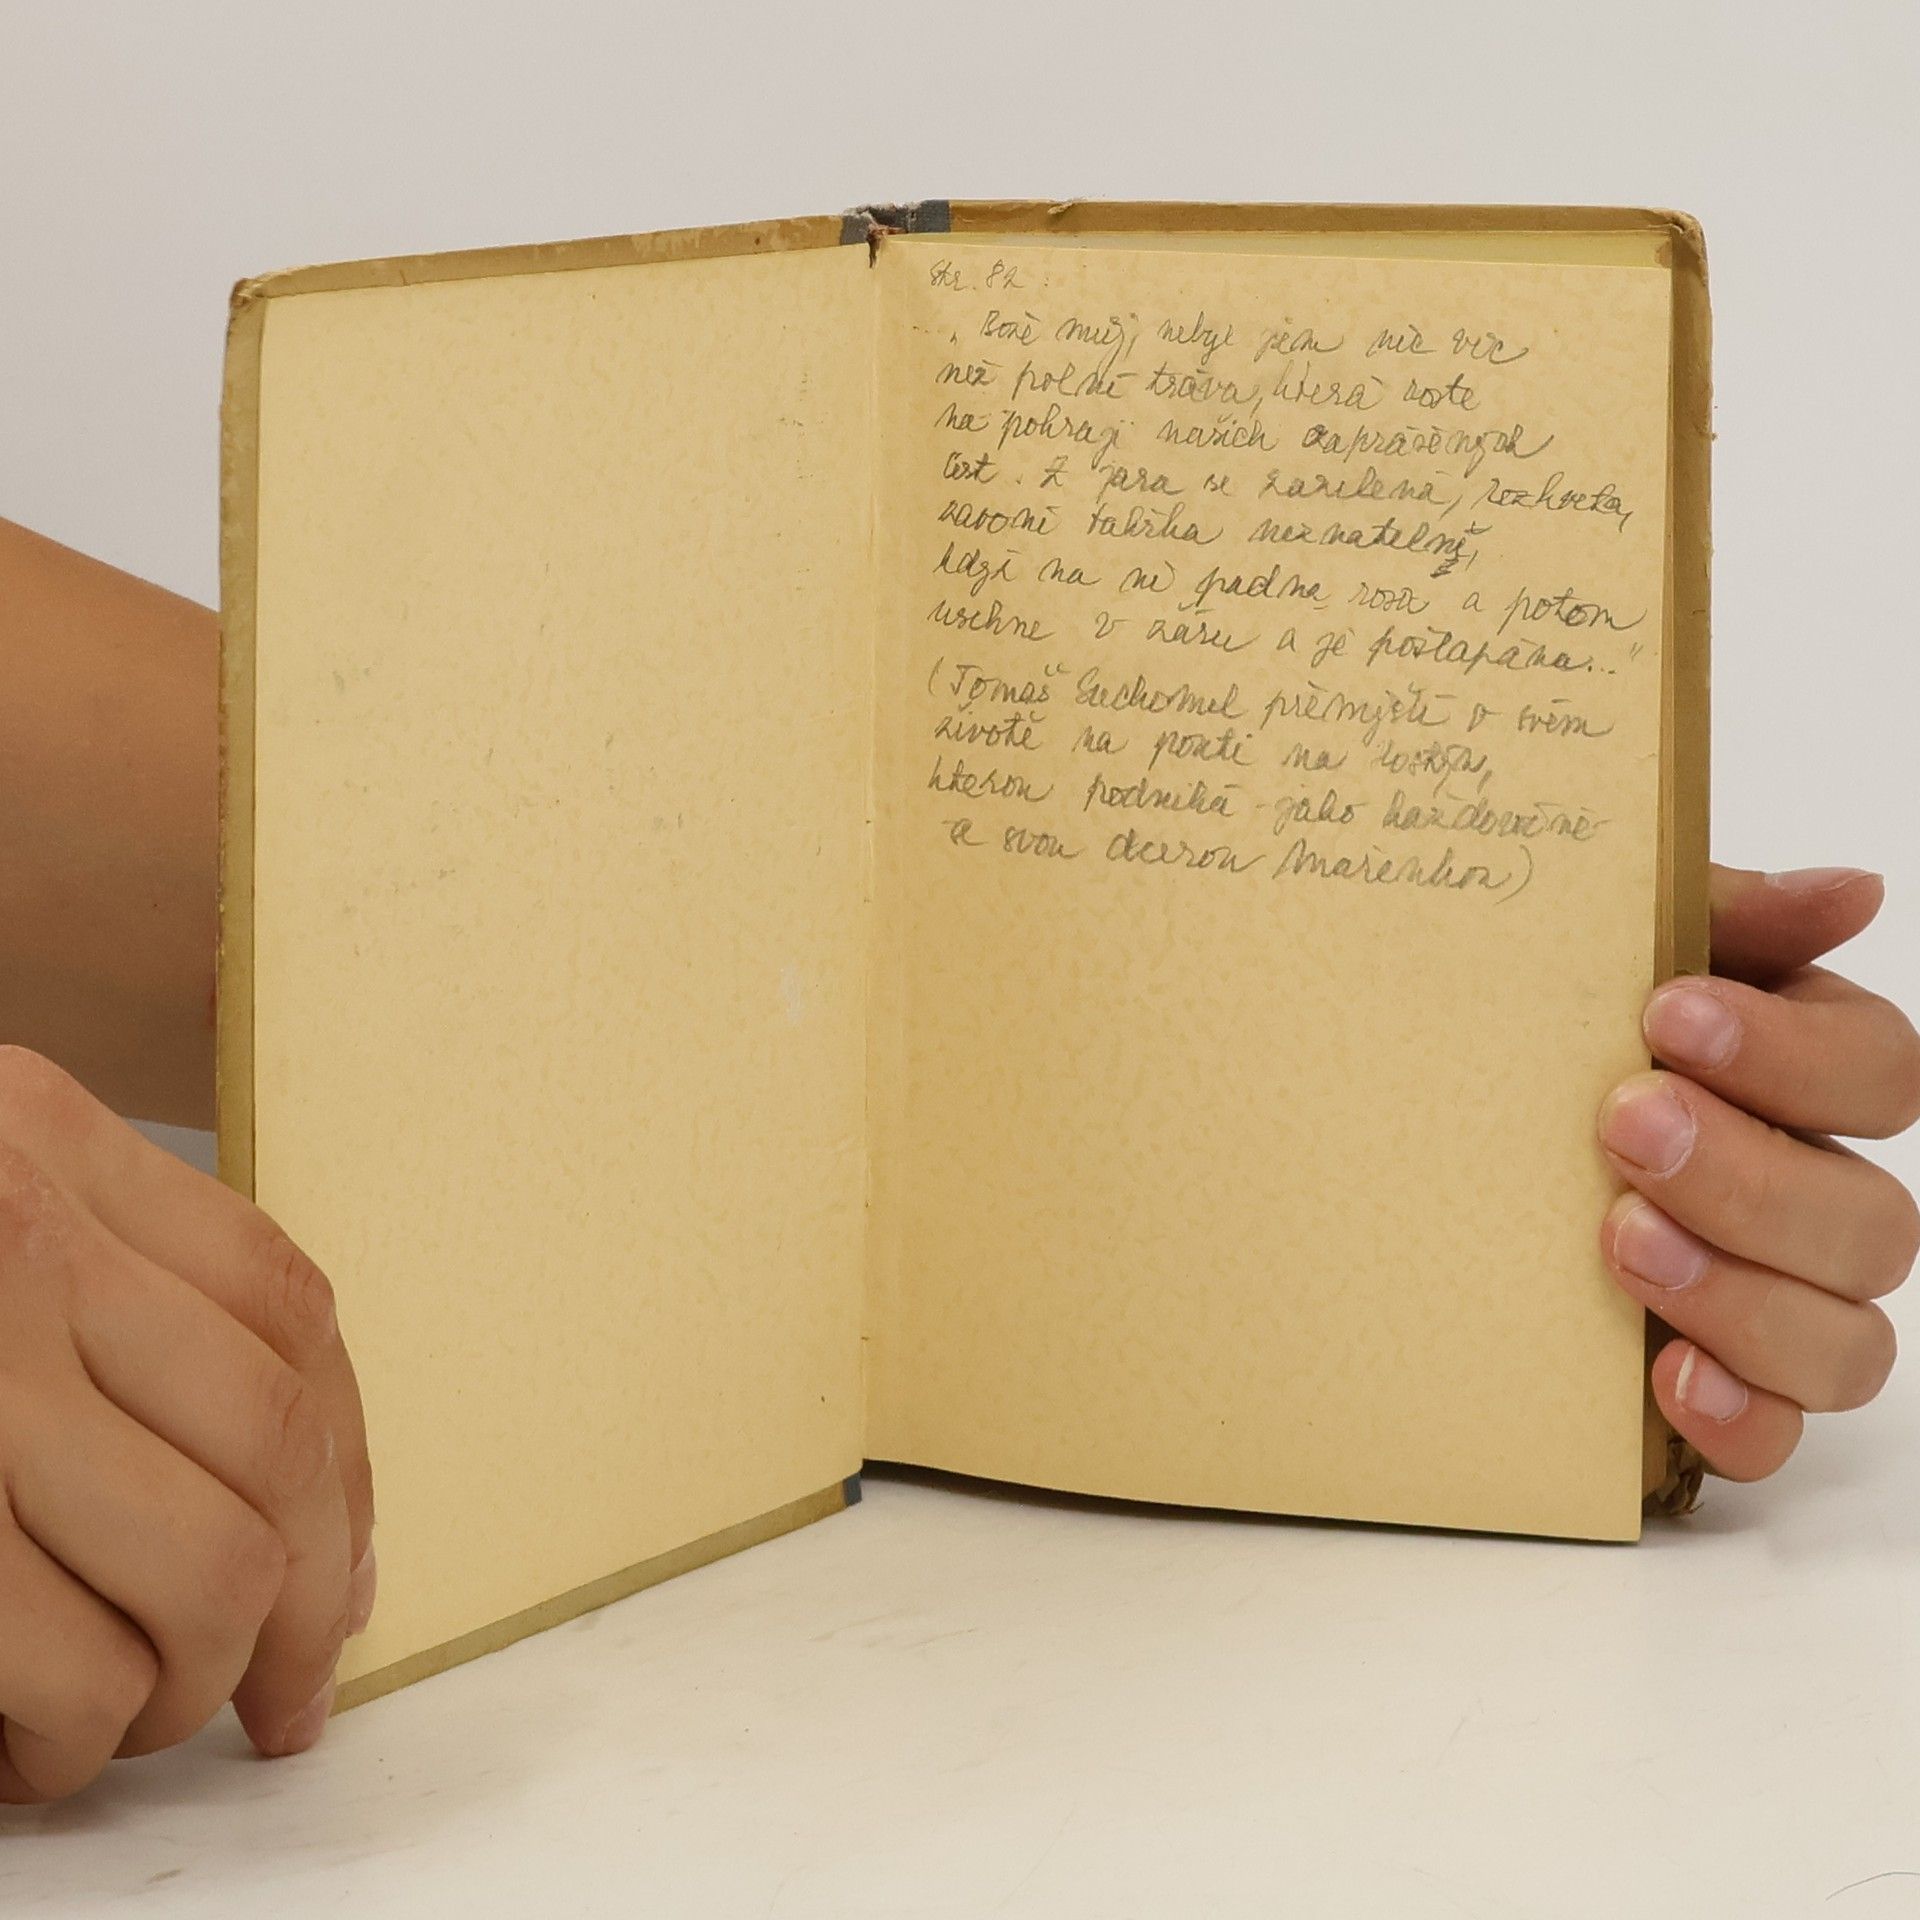 Str. 82 :
„Bože můj, nebyl jsem nic víc
než polní tráva, která roste
na pokraji našich zaprášených
cest. Z jara se zazelená, rozkvete,
zavoní takřka neznatelně,
když na ni padne rosa a potom
uschne v záru a je pošlapána..."
(Tomáš Suchomel přemýšlí o svém
životě na pouti na Hostýn,
kterou podniká - jako každoročně -
se svou dcerou Mařenkou)